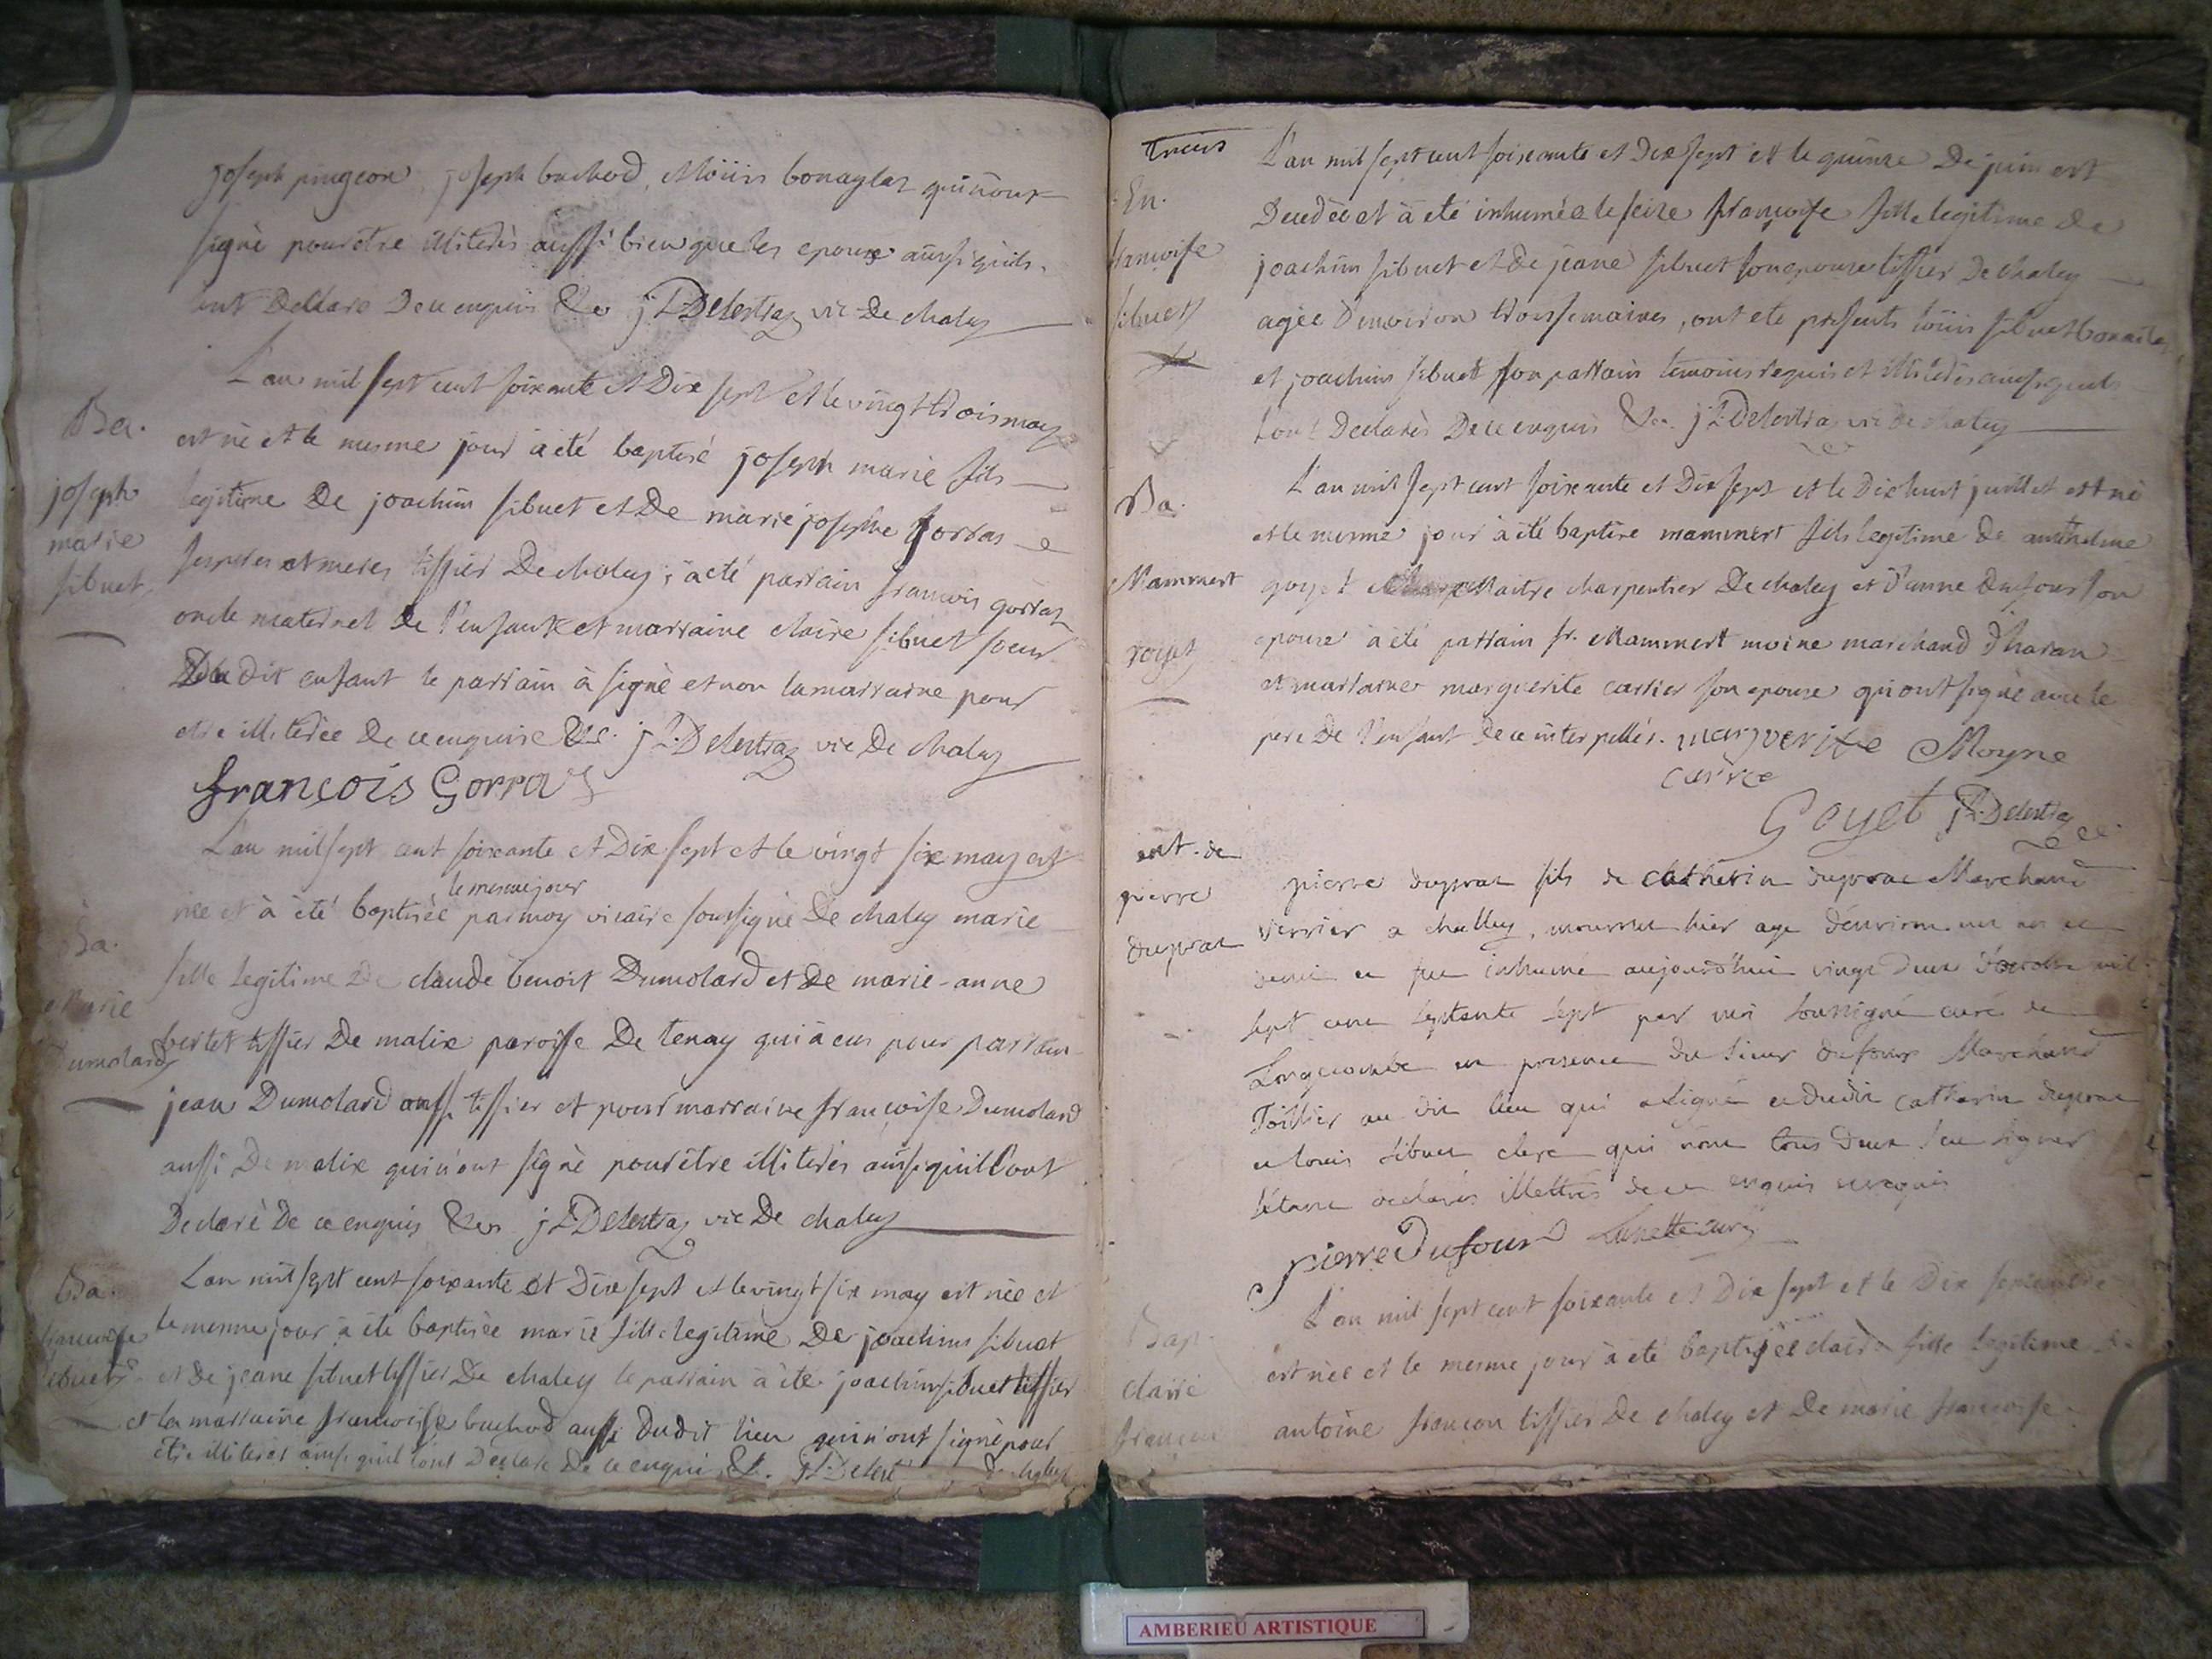 joseph pingeon, joseph buchod, et loüis bonaglas qui n'ont
signé pour être illiterés aussi bien que les epoux ainsi qu'ils
ont declaré de ce enquis &c. j P. Delestraz vic. De chaley
L'an mil sept cent soixante et Dix sept et le vingt trois may
est né et le mesme jour à été baptisé joseph marie fils
legitime De joachim sibuet et De marie josephe gorras
ses peres et meres tissier De chaley, à été parrain francois gorras
oncle maternel De l'enfant et marraine claire sibuet soeur
Du dit enfant le parrain à signé et non la marraine pour
etre illiterée De ce enquise &c. j P. Delestraz vic De chaley
françois Gorras
Ba.
joseph
marie
sibuet
L'an mil sept cent soixante et Dix sept et le vingt six may est
le mesme jour
née et à été baptisée par moy vicaire soussigné De chaley marie
fille legitime De claude benoit Dumolard et De marie-anne
bertet tissier De malix paroisse De tenay qui à eu pour parrain
jean Dumolard aussi tissier et pour marraine francoise Dumolard
aussi De malix qui n'ont signé pour être illiterés ainsi qu'il l'ont
Declaré De ce enquis &c. j P. Delestraz vic De chaley
Ba.
Marie
Dumolard
L'an mil sept cent soixante et Dix sept et le vingt six may est née et
le mesme jour à été baptisée marie fille legitime De joachim sibuet
et de jeane sibuet tissier De chaley le parrain à été joachim sibuet tissier
et la marraine francoise buchod aussi Du dit lieu qui n'ont signé pour
etre illiteres ainsi quil l'ont Declaré De ce enquis &c. j P. Delest
Ba.
francoise
sibuet
L'an mil sept cent soixante et Dix sept et le quinze De juin est
Decedée et à été inhumée le seize francoise fille legitime De
joachim sibuet et de jeane sibuet son epouse tissier De chaley
agée D'environ trois semaines, ont eté presents loüis sibuet
et joachim sibuet son parrain temoins requis et illiterés ainsi quils
l'ont Declarés De ce enquis &c. j P. Delestraz vic de chaley
En.
francoise
sibuet
L'an mil sept cent soixante et Dix sept et le Dix huit juillet est né
et le mesme jour à été baptisé mammert fils legitime De anthelme
goyet Maitre charpentier De chaley et d'anne Dufour son
epouse à été parrain sr. Mammert moine marchand d'haran
et marraine marguerite carrier son epouse qui ont signé avec le
pere De l'enfant de ce interpellés. marguerite Moyne
carrie
Goyet j P. Delestraz
Ba.
Mammert
goyet
pierre duprat fils de catherin duprat Marchand
verrier a challey, mourut hier agé d'environ un an et
demi et fut inhumé aujourd'hui vingt deux d'octobre mil
sept cent septante sept par moi soussigné curé de
Longecombe en presence du sieur dufour Marchand
au dit lieu qui a signé et dudit catherin duprat
et louis sibuet clerc qui n'ont tous deux seu signer
s'etant declarés illettrés de ce enquis et requis
pierre Dufour
ent. de
pierre
duprat
L'an mil sept cent soixante et Dix sept et le Dix septembre
est née et le mesme jour à été baptisée claire fille legitime De
antoine francon tissier De chaley et De marie francoise
Bap.
claire
francon
AMBERIEU ARTISTIQUE